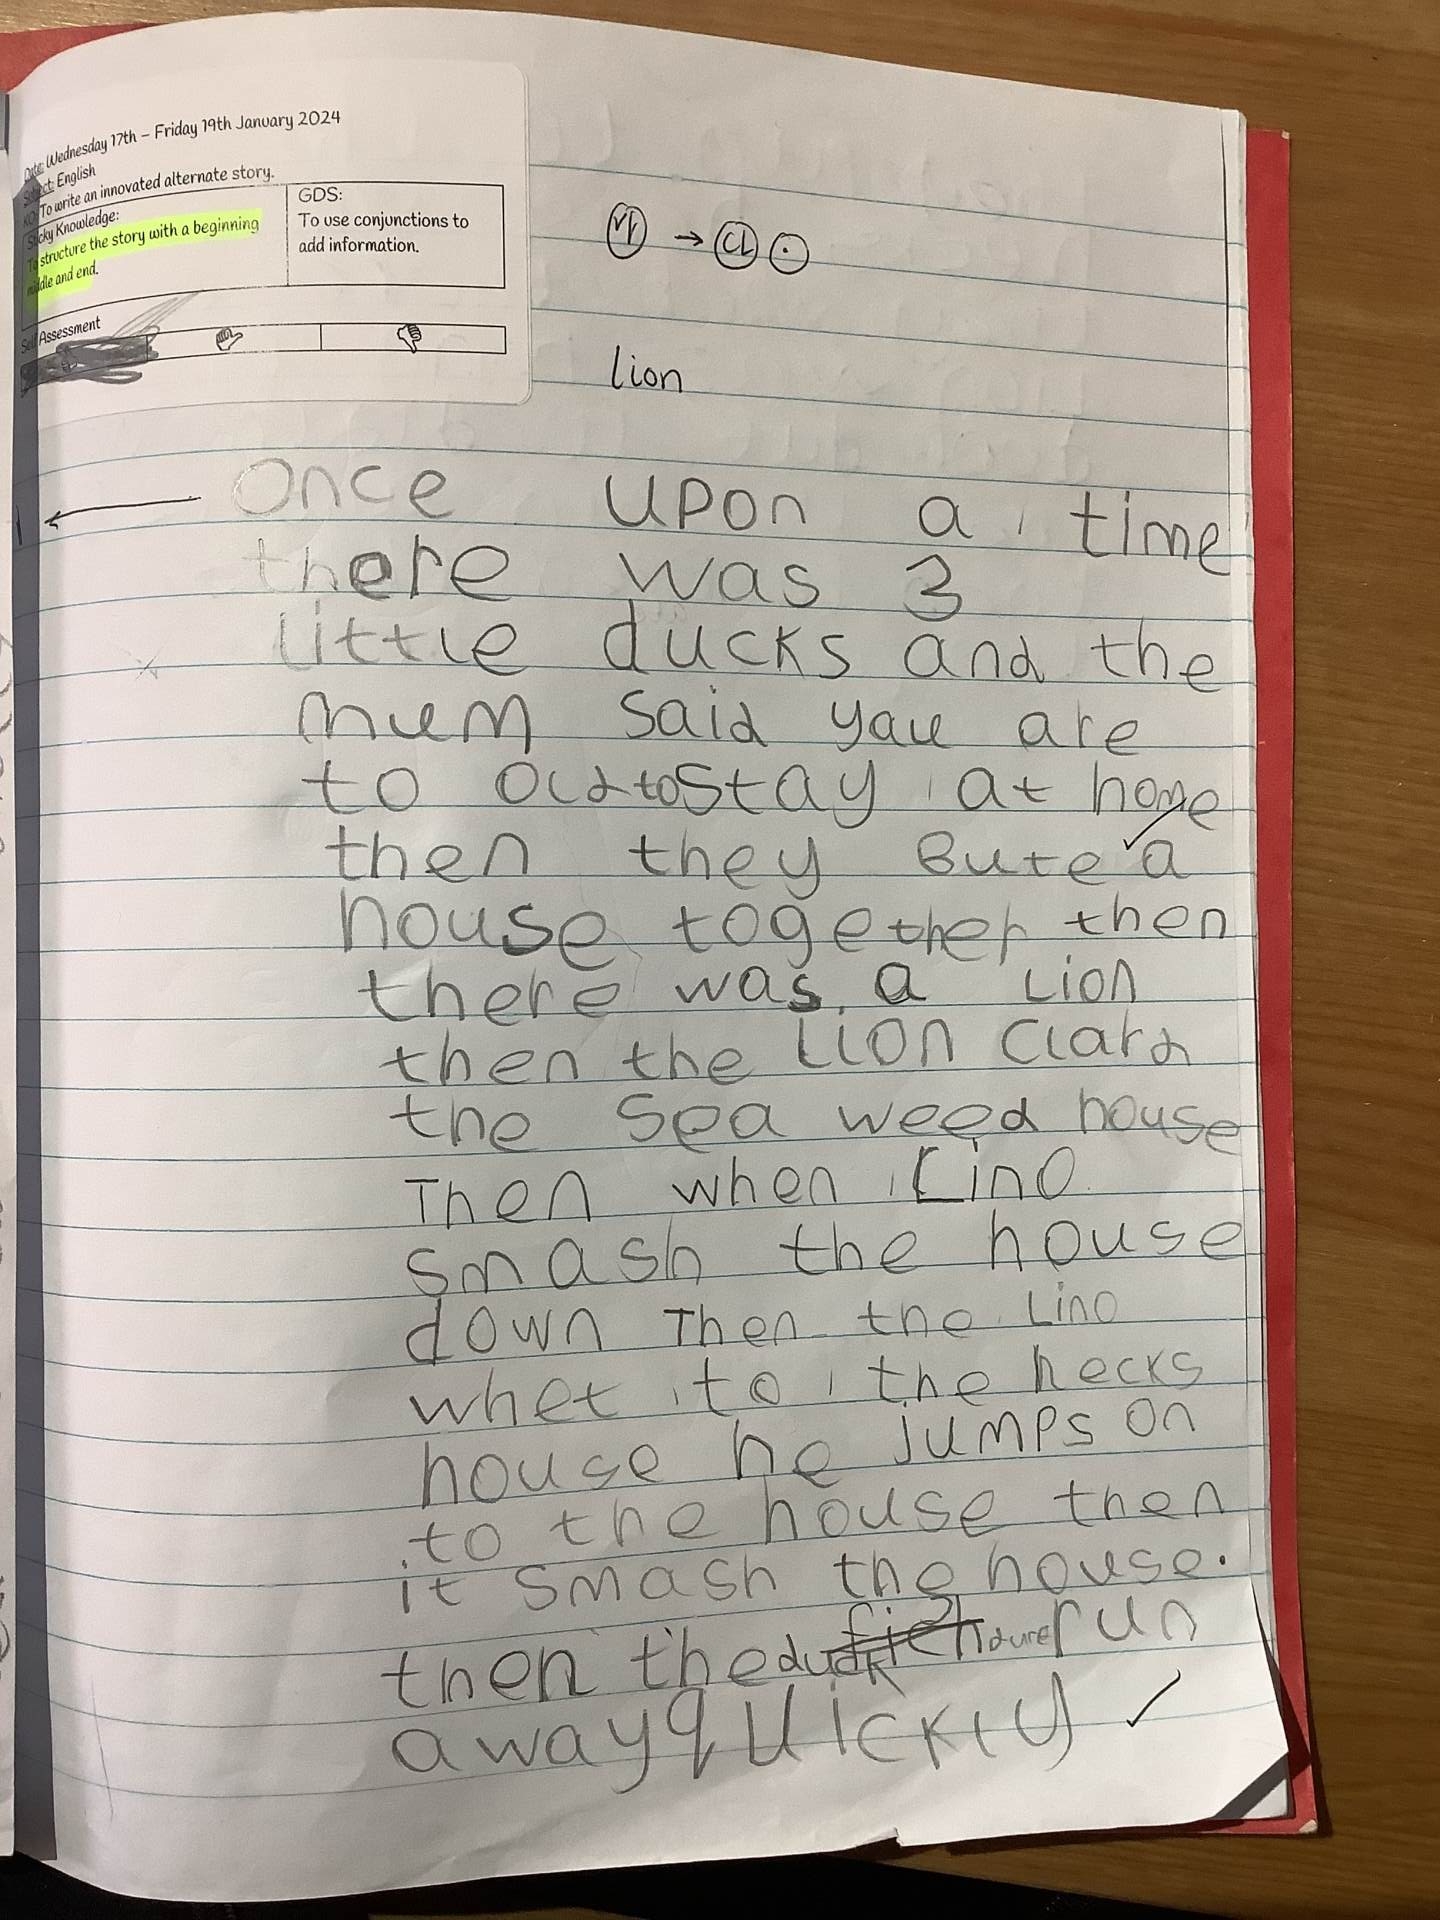 Date: Wednesday 17th – Friday 19th January 2024
Subject: English
KO: To write an innovated alternate story.
Sticky Knowledge:
To structure the story with a beginning
middle and end.
GDS:
To use conjunctions to
add information.
Self Assessment
VF → CL .
lion
Once upon a time
there was 3
little ducks and the
mum said yau are
to old to stay at home
then they Bute a
house together then
there was a Lion
then the Lion Clard
the sea weed house
Then when Lino
smash the house
down Then the Lino
whet to the hecks
house he jumps on
to the house then
it smash the house.
then the duck run
away quickly